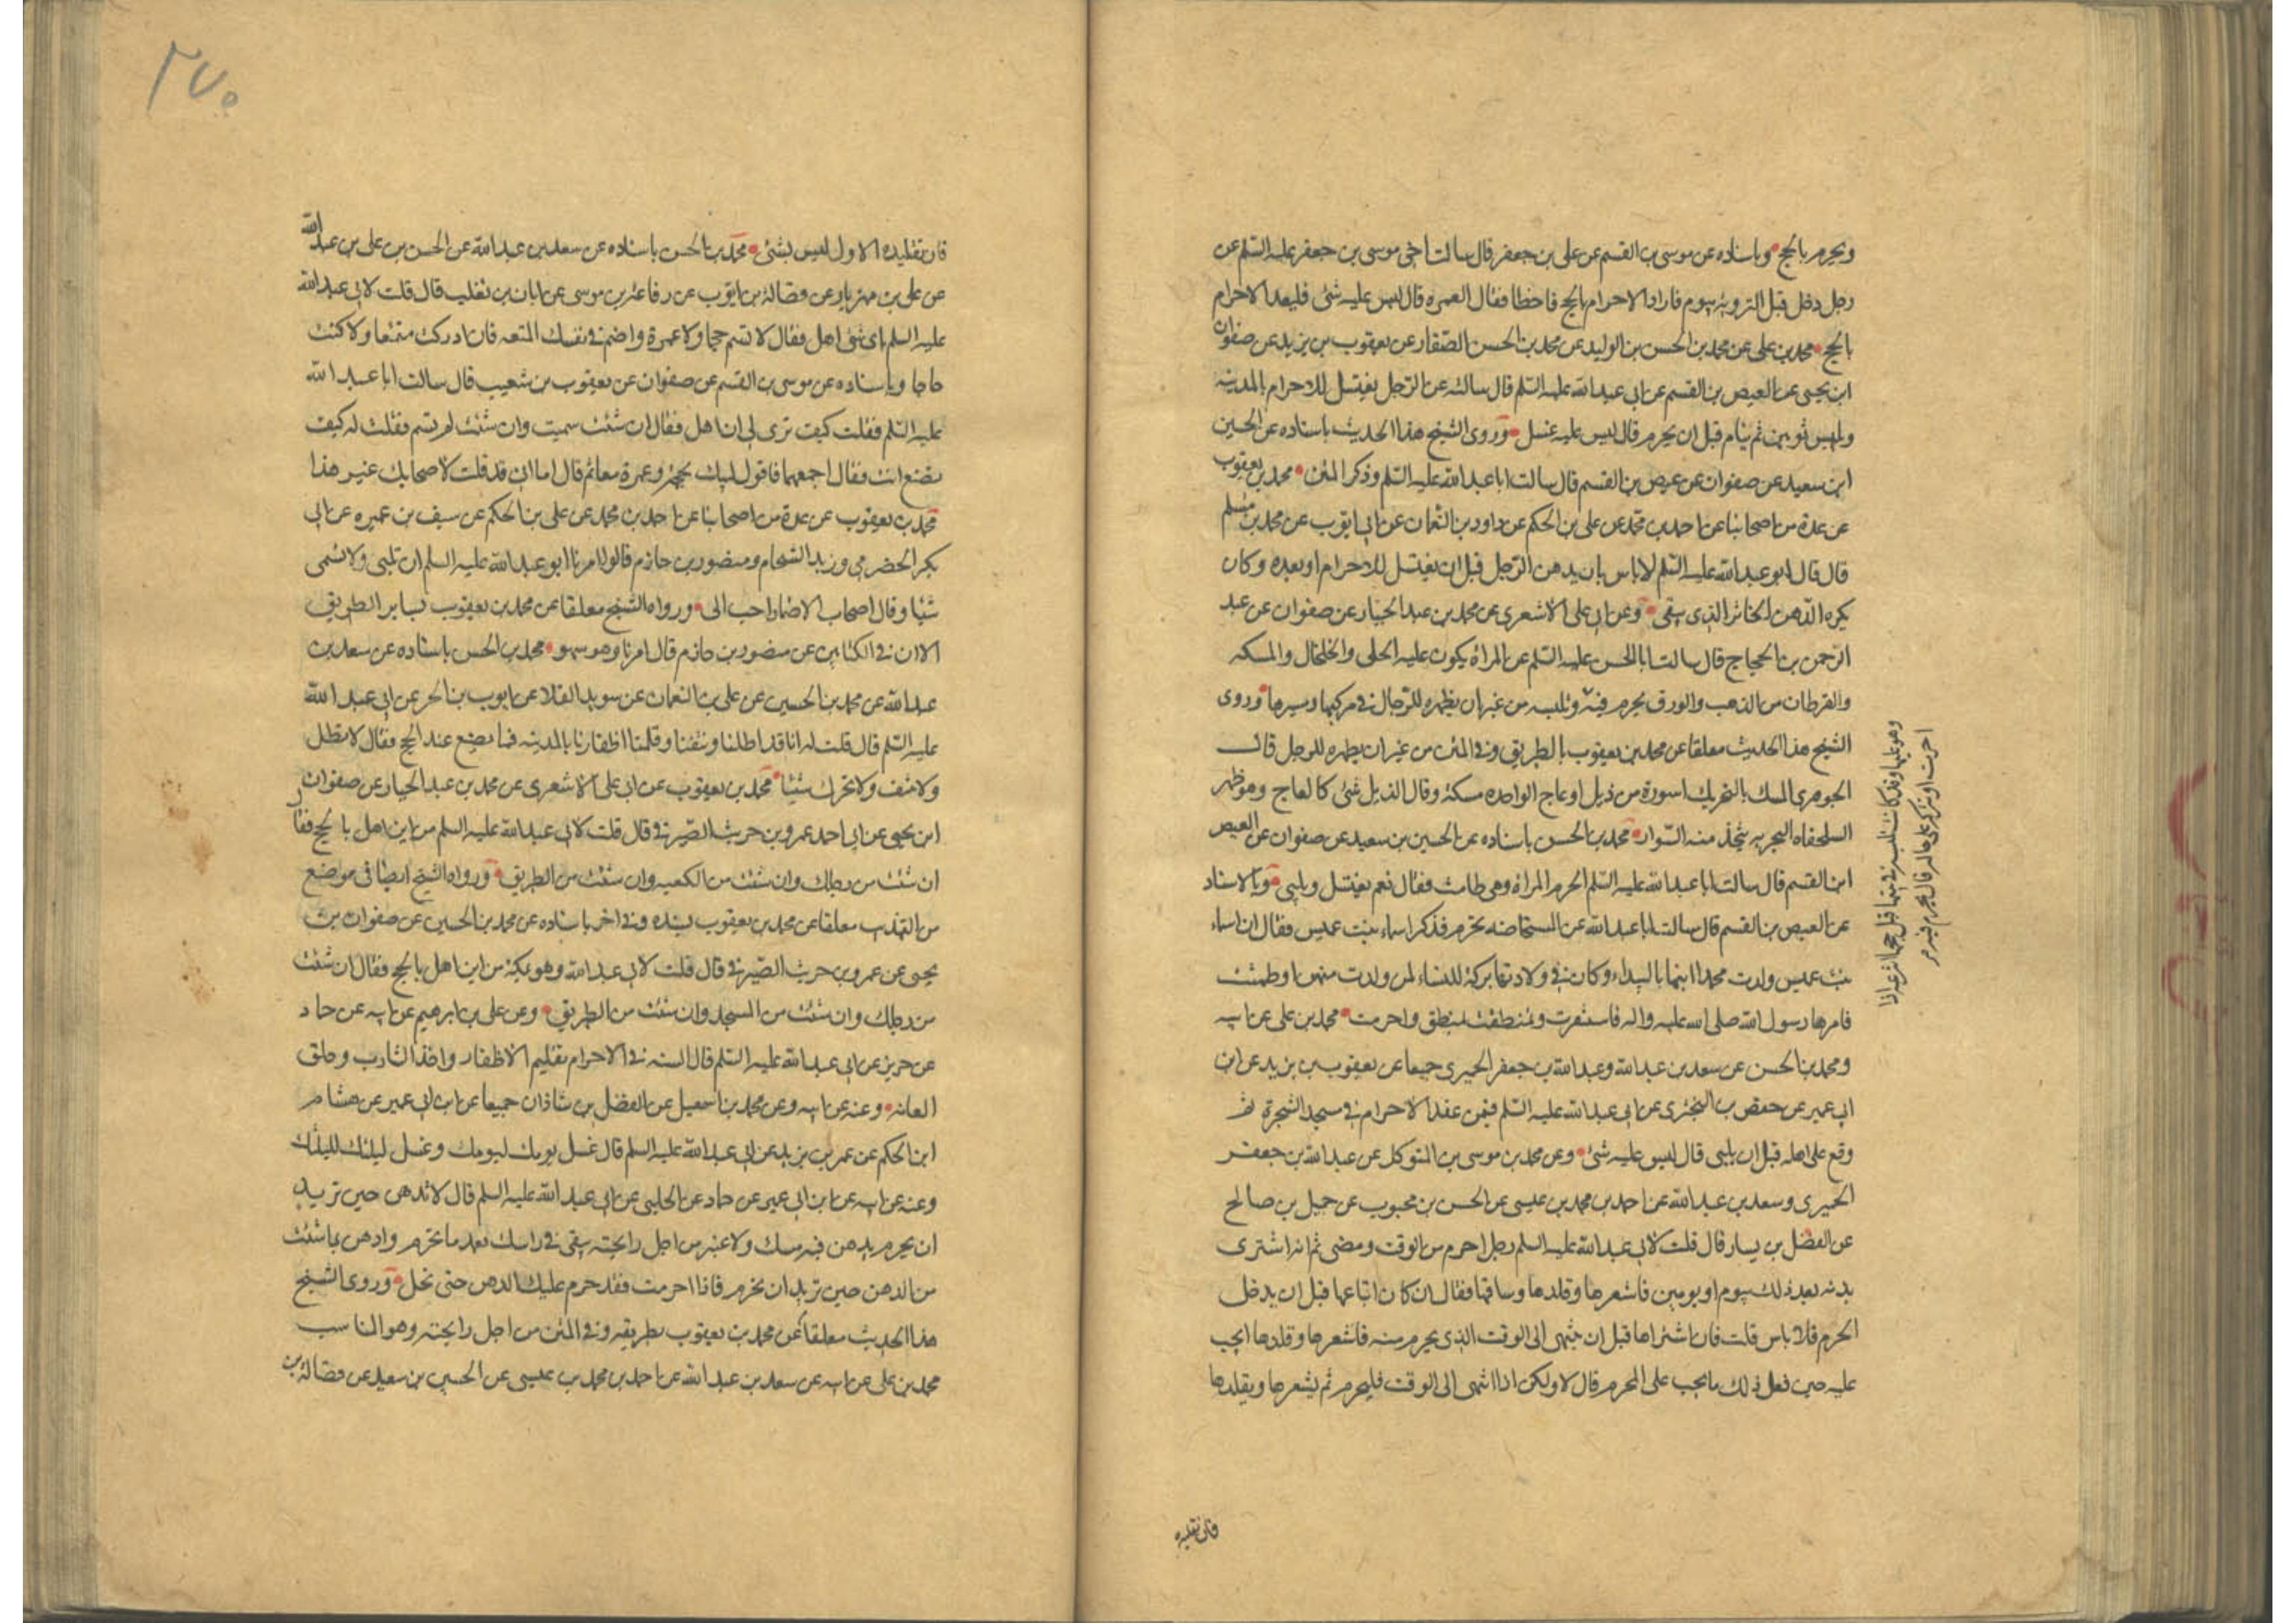 ويحرم بالحج وباسناده عن موسى بن القسم عن على بن جعفر قال سالت اخى موسى بن جعفر عليه السلم عن
رجل دخل قبل التروية بيوم فاراد الاحرام بالحج فاخطا فقال العمره قال ليس عليه شئ فليعد الاحرام
بالحج محمد بن على عن محمد بن الحسن بن الوليد عن محمد بن الحسن الصفار عن يعقوب بن يزيد عن صفوان
ابن يحيى عن العيص بن القسم عن ابى عبد الله عليه السلم قال سالته عن الرجل يغتسل للاحرام بالمدينه
ويلبس ثوبين ثم ينام قبل ان يحرم قال ليس عليه غسل وروى الشيخ هذا الحديث باسناده عن الحسين
ابن سعيد عن صفوان عن عيص بن القسم قال سالت ابا عبد الله عليه السلم وذكر المتن محمد بن يعقوب
عن عدة من اصحابنا عن احمد بن محمد عن على بن الحكم عن داود بن النعمان عن ابى ايوب عن محمد بن مسلم
قال قال ابو عبد الله عليه السلم لا باس بان يدهن الرجل قبل ان يغتسل للاحرام او بعده وكان
يكره الدهن الخاثر الذى يبقى وعن ابى على الاشعرى عن محمد بن عبد الجبار عن صفوان عن عبد
الرحمن بن الحجاج قال سالت ابا الحسن عليه السلم عن المراة يكون عليه الحلى والخلخال والمسكه
والقرطان من الذهب والورق يحرم فيه وتلبسه من غير ان يظهره للرجال فى مركبها ومسيرها وروى
الشيخ هذا الحديث معلقا عن محمد بن يعقوب بالطريق وفى المتن من غير ان يظهره للرجل قال
الجوهرى المسك بالتحريك اسورة من ذبل او عاج الواحده مسكة وقال الذبل شئ كالعاج وهو ظهر
السلحفاه البحريه يتخذ منه السوار محمد بن الحسن باسناده عن الحسين بن سعيد عن صفوان عن العيص
ابن القسم قال سالت ابا عبد الله عليه السلم اتحرم المراة وهى طامث فقال نعم تغتسل وتلبى وبالاسناد
عن العيص بن القسم قال سالت ابا عبد الله عن المستحاضه تحرم فذكر اسماء بنت عميس فقال ان اسماء
بنت عميس ولدت محمدا ابنها بالبيداء وكان فى ولادتها بركة للنساء لمن ولدت منهن او طمثت
فامرها رسول الله صلى الله عليه واله فاستثفرت وتنطقت بمنطق واحرمت محمد بن على عن ابيه
ومحمد بن الحسن عن سعد بن عبد الله وعبد الله بن جعفر الحميرى جميعا عن يعقوب بن يزيد عن ابن
ابى عمير عن حفص بن البخترى عن ابى عبد الله عليه السلم فيمن عقد الاحرام فى مسجد الشجرة ثم
وقع على اهله قبل ان يلبى قال ليس عليه شئ وعن محمد بن موسى بن المتوكل عن عبد الله بن جعفر
الحميرى وسعد بن عبد الله عن احمد بن محمد بن عيسى عن الحسن بن محبوب عن جميل بن صالح
عن الفضل بن يسار قال قلت لابى عبد الله عليه السلم رجل احرم من الوقت ومضى ثم انه اشترى
بدنه بعد ذلك بيوم او يومين فاشعرها وقلدها وساقها فقال ان كان ابتاعها قبل ان يدخل
الحرم فلا باس قلت فان اشتراها قبل ان ينتهى الى الوقت الذى يحرم منه فاشعرها وقلدها ايجب
عليه حين فعل ذلك ما يجب على المحرم قال لا ولكن اذا انتهى الى الوقت فليحرم ثم يشعرها ويقلدها
وهو عليها وقد كانت تلبسه فى بيتها قبل حجها اتنزعه اذا
احرمت او تتركه على حاله قال تحرم فيه
فان تقليده
٢٧٠
فان تقليده الاول ليس بشئ محمد بن الحسن باسناده عن سعد بن عبد الله عن الحسن بن على بن عبد الله
عن على بن مهزيار عن فضالة بن ايوب عن رفاعة بن موسى عن ابان بن تغلب قال قلت لابى عبد الله
عليه السلم باى شئ اهل فقال لا تسم حجا ولا عمرة واضمر فى نفسك المتعه فان ادركت متمتعا والا كنت
حاجا وباسناده عن موسى بن القسم عن صفوان عن يعقوب بن شعيب قال سالت ابا عبد الله
عليه السلم فقلت كيف ترى لى ان اهل فقال ان شئت سميت وان شئت لم تسم فقلت له كيف
تصنع انت فقال اجمعهما فاقول لبيك بحجة وعمرة معا ثم قال اما انى قد قلت لاصحابك غير هذا
محمد بن يعقوب عن عدة من اصحابنا عن احمد بن محمد عن على بن الحكم عن سيف بن عميره عن ابى
بكر الحضرمى وزيد الشحام ومنصور بن حازم قالوا امرنا ابو عبد الله عليه السلم ان نلبى ولا نسمى
شيئا وقال اصحاب الاضمار احب الى ورواه الشيخ معلقا عن محمد بن يعقوب بساير الطريق
الا ان فى الكتابين عن منصور بن حازم قال امرنا وهو سهو محمد بن الحسن باسناده عن سعد بن
عبد الله عن محمد بن الحسين عن على بن النعمان عن سويد القلا عن ايوب بن الحر عن ابى عبد الله
عليه السلم قال قلت له انا قد اطلنا ونتفنا وقلمنا اظفارنا بالمدينه فما نصنع عند الحج فقال لا تطل
ولا تنتف ولا تحرك شيئا محمد بن يعقوب عن ابى على الاشعرى عن محمد بن عبد الجبار عن صفوان
ابن يحيى عن ابى احمد عمرو بن حريث الصيرفى قال قلت لابى عبد الله عليه السلم من اين اهل بالحج فقال
ان شئت من رحلك وان شئت من الكعبه وان شئت من الطريق ورواه الشيخ ايضا فى موضع
من التهذيب معلقا عن محمد بن يعقوب بسنده وفى اخر باسناده عن محمد بن الحسين عن صفوان بن
يحيى عن عمرو بن حريث الصيرفى قال قلت لابى عبد الله وهو بمكة من اين اهل بالحج فقال ان شئت
من رحلك وان شئت من المسجد وان شئت من الطريق وعن على بن ابرهيم عن ابيه عن حماد
عن حريز عن ابى عبد الله عليه السلم قال السنه فى الاحرام تقليم الاظفار واخذ الشارب وحلق
العانه وعنه عن ابيه وعن محمد بن اسمعيل عن الفضل بن شاذان جميعا عن ابن ابى عمير عن هشام
ابن الحكم عن عمر بن يزيد عن ابى عبد الله عليه السلم قال غسل يومك ليومك وغسل ليلتك لليلتك
وعنه عن ابيه عن ابن ابى عمير عن حماد عن الحلبى عن ابى عبد الله عليه السلم قال لا تدهن حين تريد
ان تحرم بدهن فيه مسك ولا عنبر من اجل رايحته يبقى فى راسك بعد ما تحرم وادهن بما شئت
من الدهن حين تريد ان تحرم فاذا احرمت فقد حرم عليك الدهن حتى تحل وروى الشيخ
هذا الحديث معلقا عن محمد بن يعقوب بطريقه وفى المتن من اجل رايحته وهو المناسب
محمد بن على عن ابيه عن سعد بن عبد الله عن احمد بن محمد بن عيسى عن الحسين بن سعيد عن فضالة بن